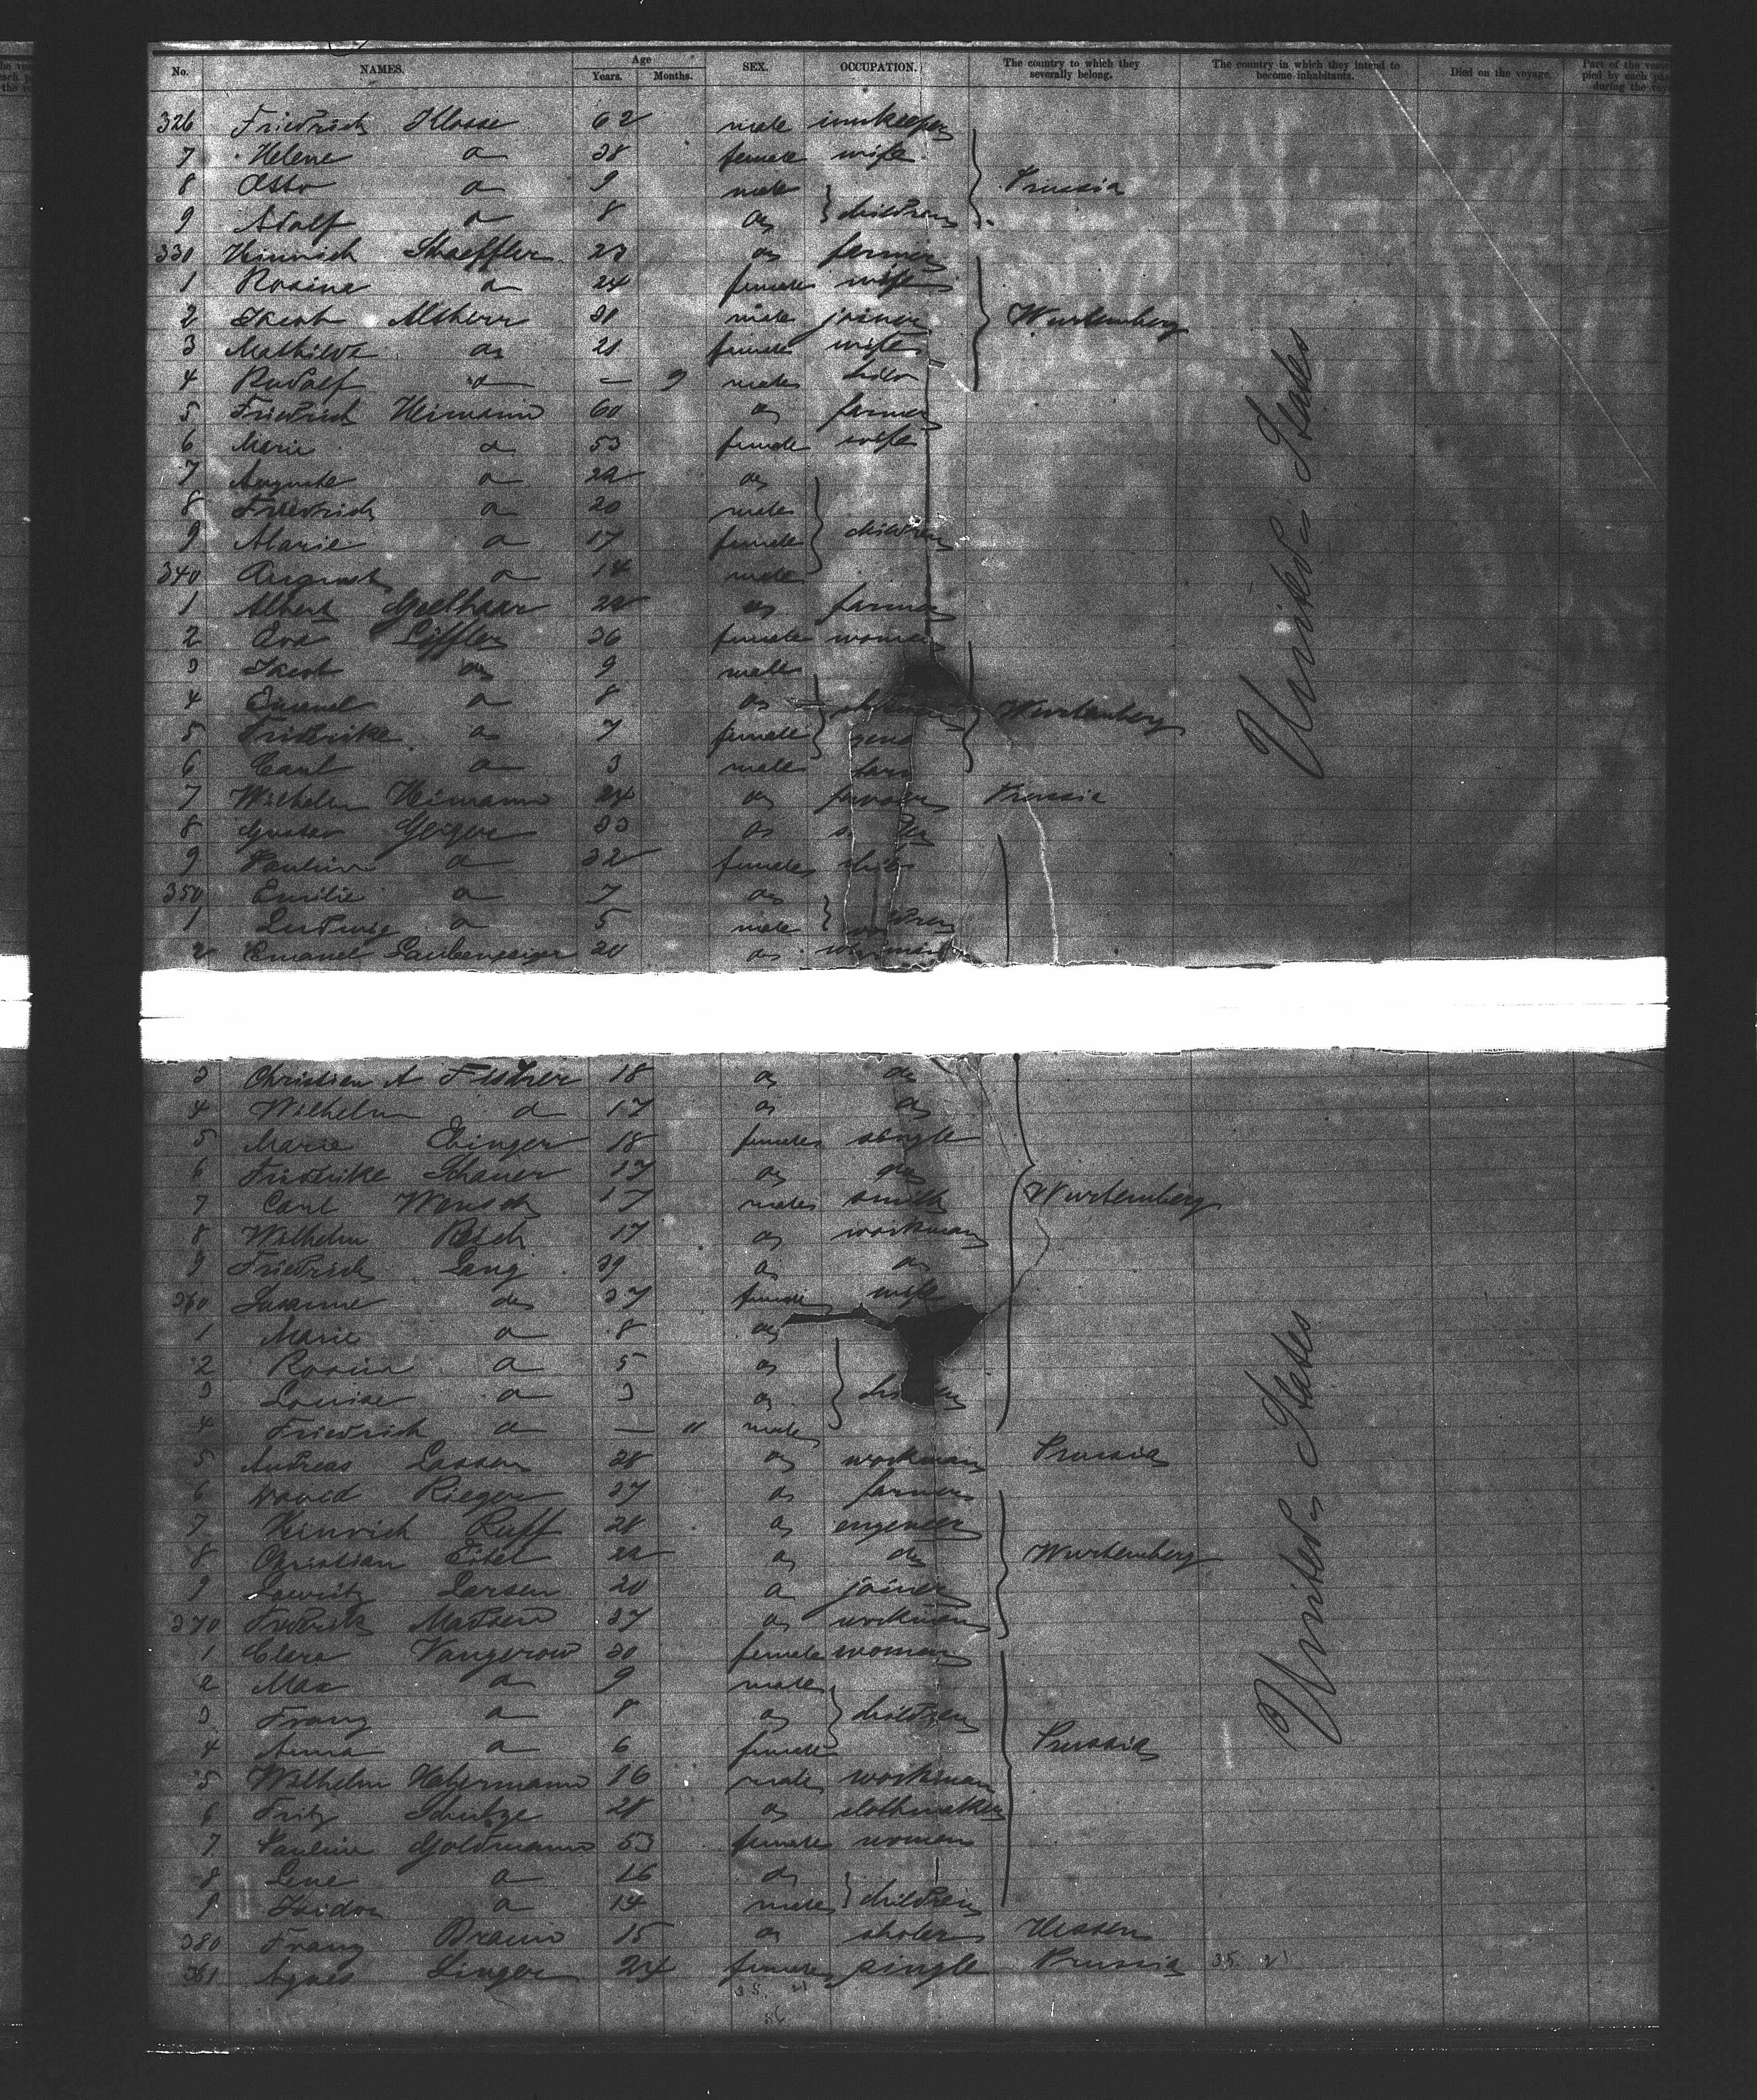 No. NAMES. Age Years. Months. SEX. OCCUPATION. The country to which they severally belong. The country in which they intend to become inhabitants. Died on the voyage. Part of the
326 Friedrich Klosse 62 male innkeeper
7 Helene do 38 female wife
8 Otto do 9 male Prussia
9 Adolf do 8 do children
330 Heinrich Schaeffler 23 do farmer
1 Rosine do 24 female wife
2 Jacob Altherr 31 male joiner Wurtemberg
3 Mathilde do 21 female wife
4 Rudolf do — 9 male child
5 Friedrich Heimann 60 do farmer
6 Marie do 53 female wife
7 Auguste do 22 do
8 Friedrich do 20 male
9 Marie do 17 female children
340 August do 14 male
1 Albert Geelhaar 22 do farmer
2 Eva Löffler 36 female woman
3 Jacob do 9 male
4 Emanuel do 8 do Wurtemberg
5 Friedrike do 7 female
6 Carl do 3 male
7 Wilhelm Heimann 24 do farmer Prussia
8 Gustav Geiger 33 do
9 Pauline do 32 female
350 Emilie do 7 do
1 Ludwig do 5 male
2 Emanuel Laubengeiger 20 do workman
3 Christian A Fischer 18 do do
4 Wilhelm do 17 do do
5 Marie Ehinger 18 female single
6 Friedrike Schauer 17 do do
7 Carl Wunsch 17 male smith Wurtemberg
8 Wilhelm Reich 17 do workman
9 Friedrich Lang 39 do do
360 Susanne do 37 female wife
1 Marie do 8 do
2 Rosina do 5 do
3 Louise do 3 do children
4 Friedrich do — " male
5 Andreas Lassen 28 do workman Prussia
6 David Rieger 27 do farmer
7 Heinrich Ruff 28 do engeneer
8 Christian Eitel 22 do do Wurtemberg
9 Lauritz Larsen 20 do joiner
370 Frederik Madsen 27 do workman
1 Clara Vangerow 30 female woman
2 Max do 9 male
3 Franz do 8 do children
4 Anna do 6 female Prussia
5 Wilhelm Habermann 16 male workman
6 Fritz Schutze 28 do clothmaker
7 Pauline Goldmann 53 female woman
8 Lene do 16 do
9 Isidor do 14 male children
380 Franz Braun 15 do sholer Hessen
381 Agnes Linger 24 female single Prussia
United States
United States